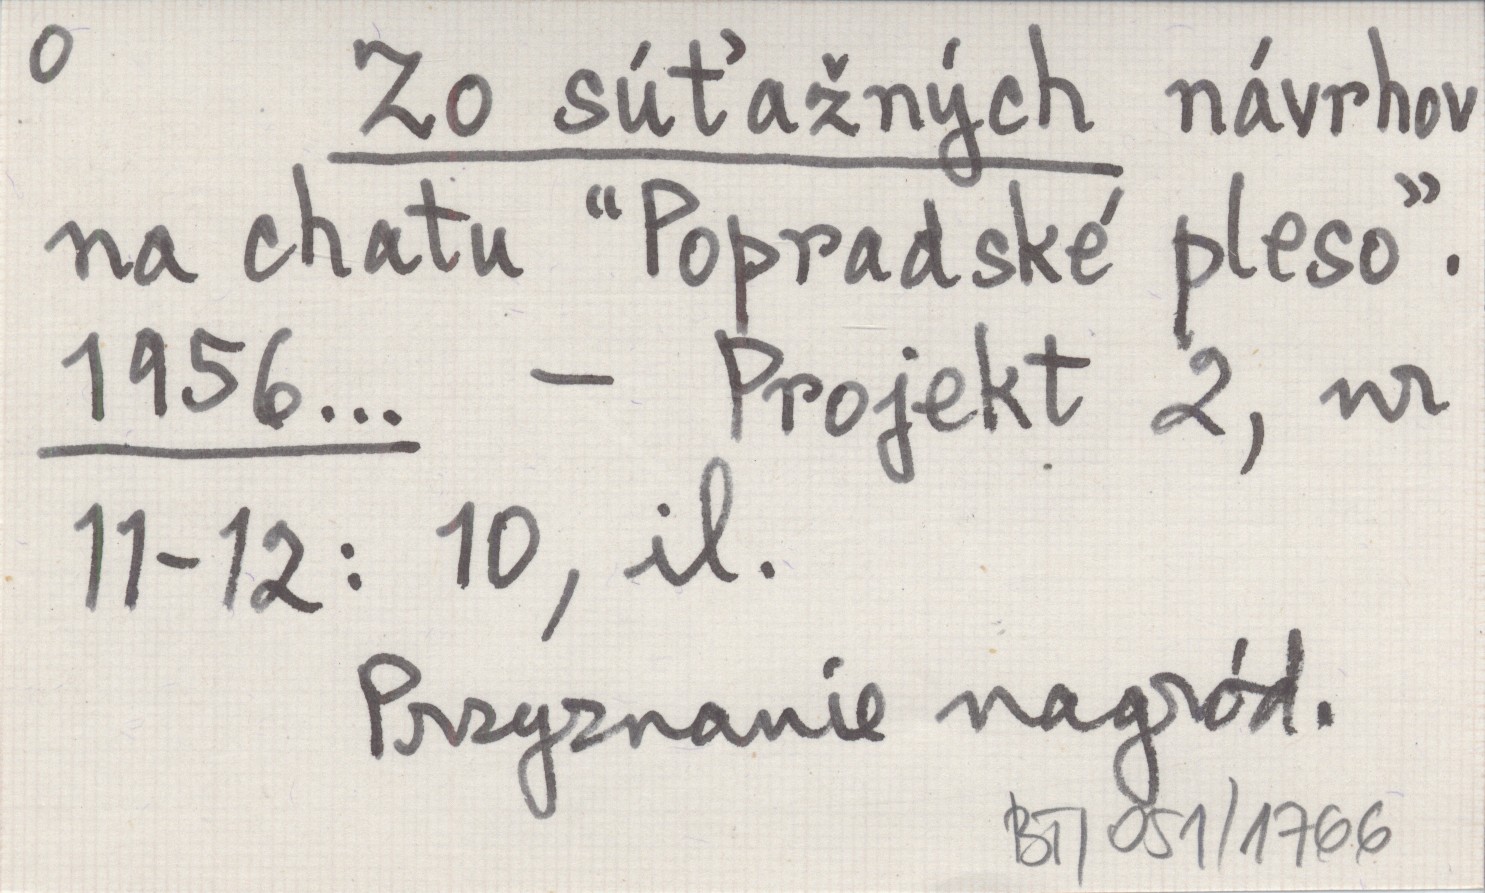 0 Zo súťažných návrhov
na chatu “Popradské pleso”.
1956... – Projekt 2, nr
11-12: 10, il.
Przyznanie nagród.
BT/051/1766